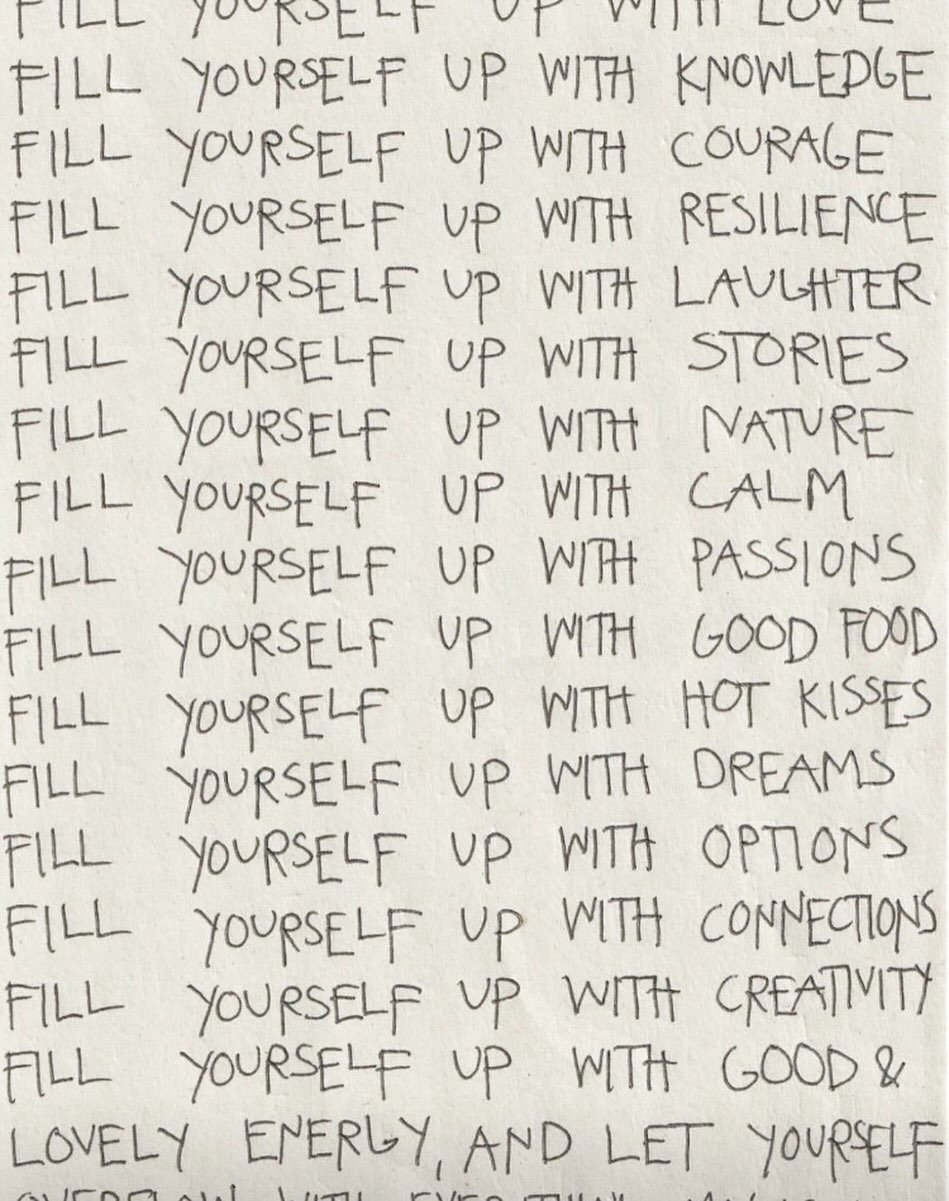 FILL YOURSELF UP WITH LOVE
FILL YOURSELF UP WITH KNOWLEDGE
FILL YOURSELF UP WITH COURAGE
FILL YOURSELF UP WITH RESILIENCE
FILL YOURSELF UP WITH LAUGHTER
FILL YOURSELF UP WITH STORIES
FILL YOURSELF UP WITH NATURE
FILL YOURSELF UP WITH CALM
FILL YOURSELF UP WITH PASSIONS
FILL YOURSELF UP WITH GOOD FOOD
FILL YOURSELF UP WITH HOT KISSES
FILL YOURSELF UP WITH DREAMS
FILL YOURSELF UP WITH OPTIONS
FILL YOURSELF UP WITH CONNECTIONS
FILL YOURSELF UP WITH CREATIVITY
FILL YOURSELF UP WITH GOOD &
LOVELY ENERGY, AND LET YOURSELF
OVERFLOW WITH